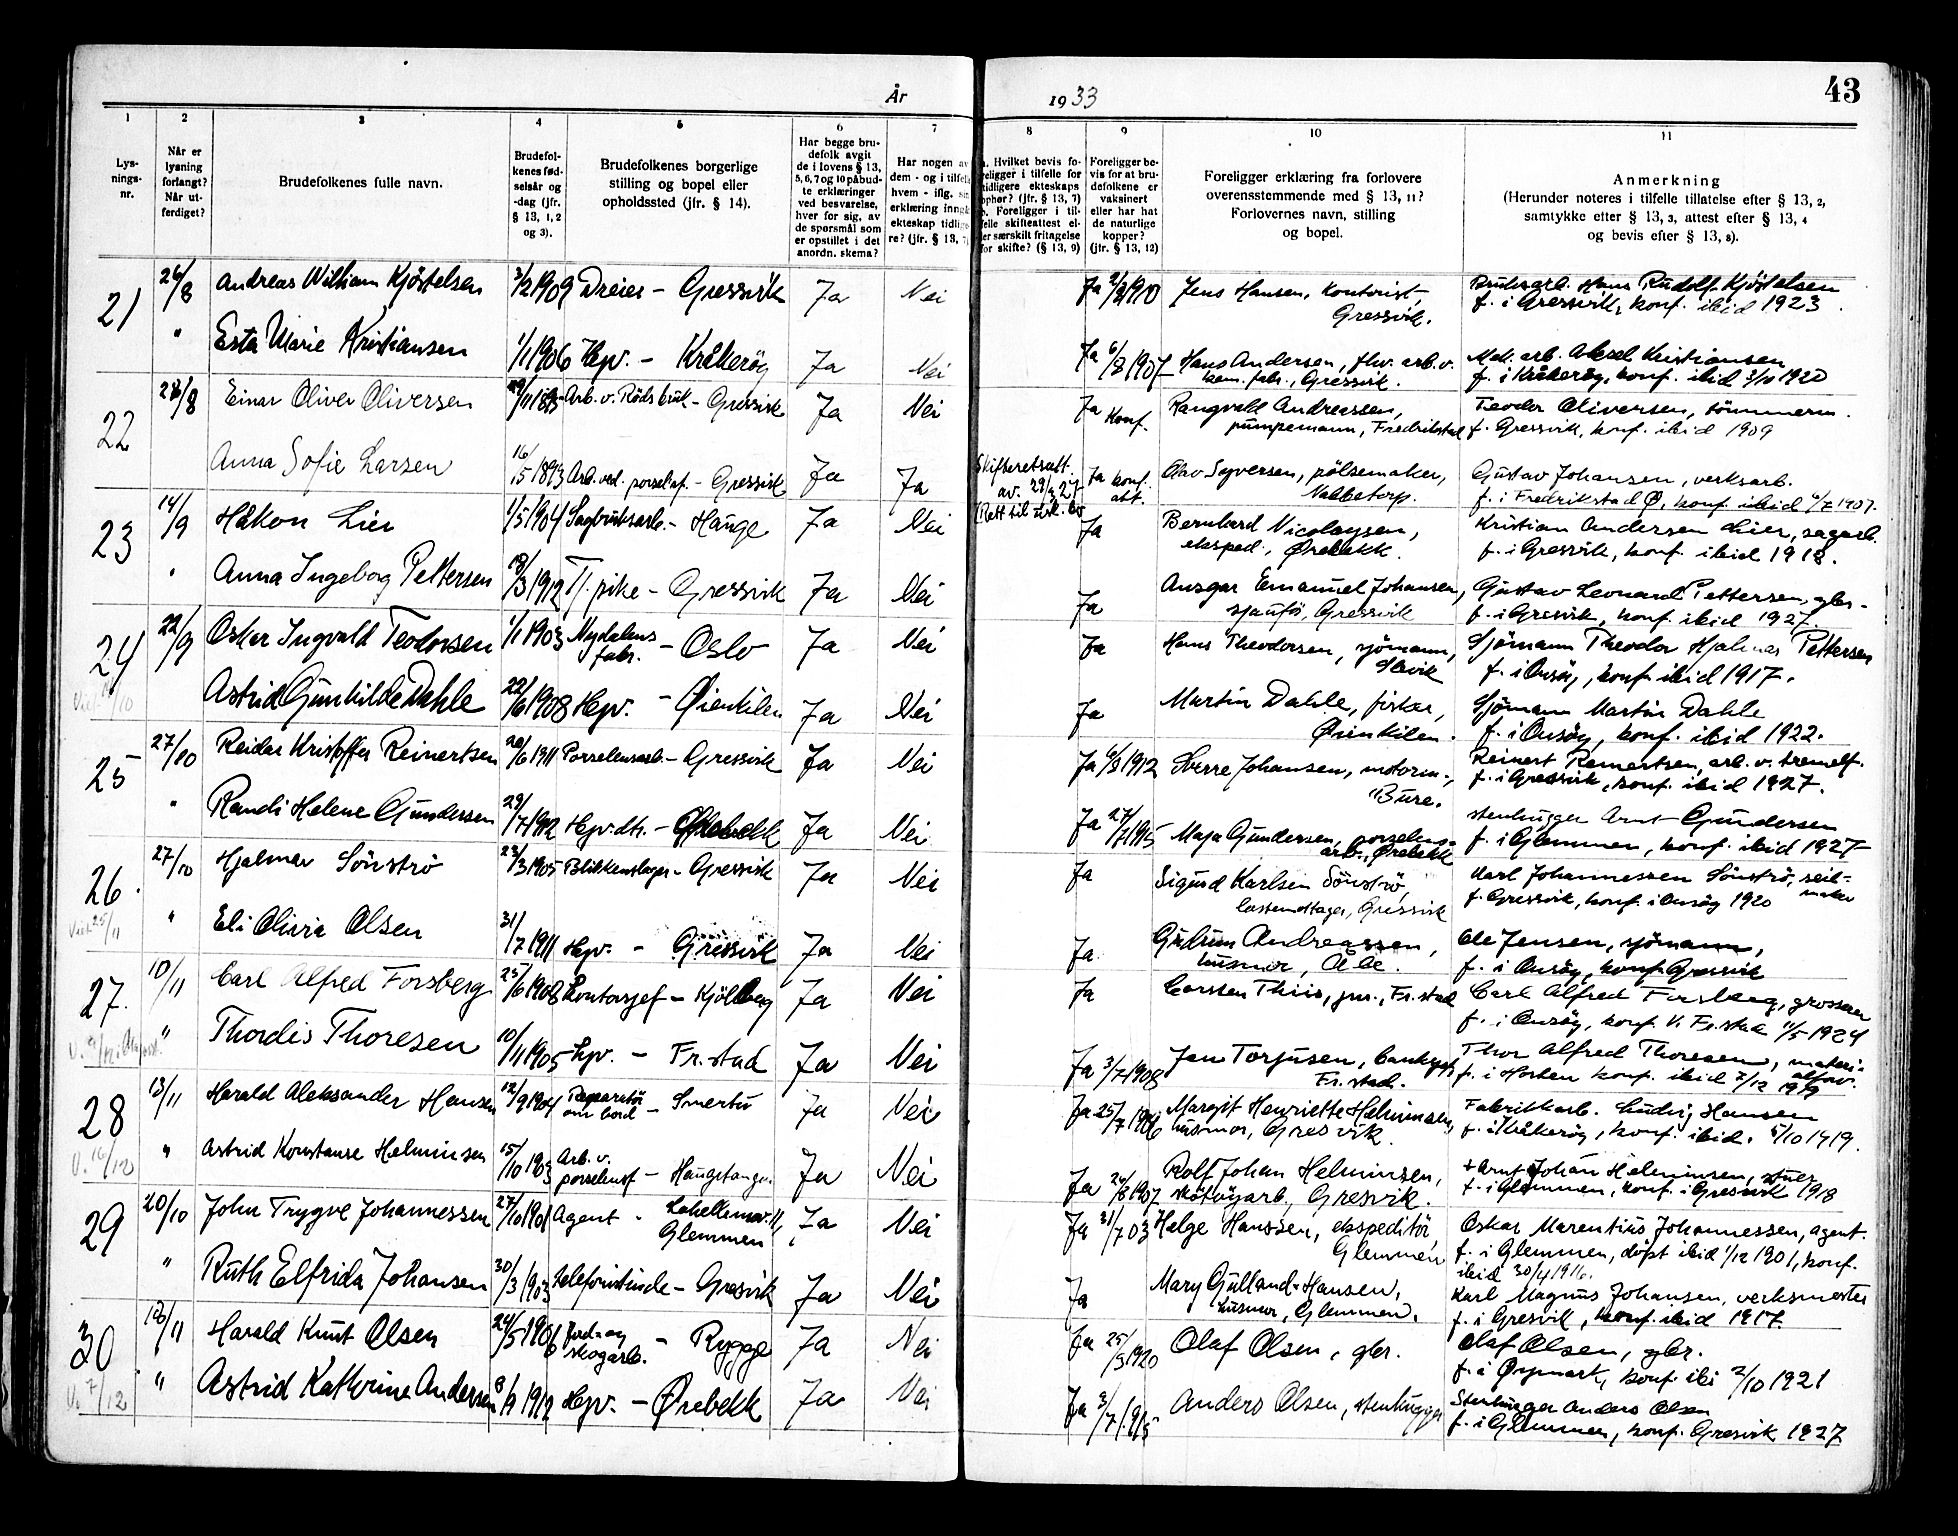 År 1933
43
1 2 3 4 5 6 7 8 9 10 11
Lys-
nings-
nr.
Når er
lysning
forlangt?
Når ut-
ferdiget?
Brudefolkenes fulle navn.
Brudefol-
kenes fød-
selsår og
-dag (jfr.
§ 13, 1, 2
og 3).
Brudefolkenes borgerlige
stilling og bopel eller
opholdssted (jfr. § 14).
Har begge bru-
defolk avgit
de i lovens § 13,
5, 6, 7 og 10 påbud-
te erklæringer
ved besvarelse,
hver for sig, av
de spørsmål som
er opstillet i det
anordn. skema?
Har nogen av
dem - og i tilfelle
hvem - iflg. sin
erklæring inngått
ekteskap tidlige-
re? (jfr. § 13, 7)
a. Hvilket bevis fo-
religger i tilfelle for
tidligere ekteskaps
ophør? (jfr. § 13, 7)
b. Foreligger i til-
felle skifteattest el-
ler særskilt fritagelse
for skifte? (§ 13, 9)
Foreligger be-
vis for at bru-
defolkene er
vaksinert
eller har hat
de naturlige
kopper?
(jfr. § 13, 12)
Foreligger erklæring fra forlovere
overensstemmende med § 13, 11?
Forlovernes navn, stilling
og bopel.
Anmerkning
(Herunder noteres i tilfelle tillatelse efter § 13, 2,
samtykke efter § 13, 3, attest efter § 13, 4
og bevis efter § 13, 8).
21 26/8 Andreas William Kjøstelsen 3/2 1909 Dreier - Gressvik Ja Nei Ja 1910 Jens Hansen, kontorist, Gressvik. Bruksarb. Hans Rudolf Kjøstelsen
f. i Gressvik, konf. ibid 1923.
" Esta Marie Kristiansen 1/1 1906 Hpv. - Kråkerøy Ja Nei Ja 6/8 1907 Hans Andersen, arb. v. kem. fabr., Gressvik. Mek. arb. Aksel Kristiansen
f. i Kråkerøy, konf. ibid 3/10 1920
22 28/8 Einar Oliver Oliversen 29/11 Arb. v. Røds bruk - Gressvik Ja Nei Ja konf. Rangvald Andreassen,
pumpemann, Fredrikstad Teodor Oliversen, tømmerm.
f. Gressvik, konf. ibid 1909
Anna Sofie Larsen 16/5 1893 Arb. ved. porsel.f. - Gressvik Ja Ja Skifteretsatt.
av. 29/3 27 Ja konf. att. Olav Syversen, pølsemaker,
Nabbetorp. Gustav Johansen, verksarb.
f. i Fredrikstad Ø, konf. ibid 1907.
23 14/9 Håkon Lier 1/5 1904 Sagbruksarb. - Hauge Ja Nei Ja Bernhard Nicolaysen,
eksped., Ørebekk. Kristian Andersen Lier, sagarb.
f. i Gressvik, konf. ibid 1918.
" Anna Ingeborg Pettersen 18/3 1912 Tj. pike - Gressvik Ja Nei Ja Ansgar Emanuel Johansen,
sjaufør, Gressvik Gustav Leonard Pettersen, gbr.
f. i Gresvik, konf. ibid 1927.
24 22/9 Oskar Ingvald Teodorsen 1/1 1903 Nydalens
fabr. - Oslo Ja Nei Ja Hans Theodorsen, sjømann,
Slevik Sjømann Theodor Hjalmar Pettersen
f. i Onsøy, konf. ibid 1917.
Astrid Gunhilde Dahle 22/6 1908 Hpv. - Øienkilen Ja Nei Ja Martin Dahle, fisker,
Øienkilen. Sjømann Martin Dahle
f. i Onsøy, konf. ibid 1922.
25 27/10 Reidar Kristoffer Reinertsen 20/6 1911 Porselensarb. - Gressvik Ja Nei Ja 6/9 1912 Sverre Johansen, motorm.,
Bure. Reinert Reinertsen, arb. v. tremelf.
f. i Gressvik, konf. ibid 1927.
" Randi Helene Gundersen 29/7 1912 Hpv. dtr. - Ørebekk Ja Nei Ja 27/7 1915 Maja Gundersen, porselens-
arb., Ørebekk stenhugger Arnt Gundersen
f. i Glemmen, konf. ibid 1927
26. 27/10 Hjalmar Sönströ 23/3 1905 Blikkenslager - Gressvik Ja Nei Ja Sigurd Karlsen Sönströ,
Gressvik Karl Johannessen Sönströ, seil-
maker
f. Gressvik, konf. i Onsøy 1920
Viet 25/11 " Eli Olivia Olsen 31/7 1911 Hpv. - Gressvik Ja Nei Ja Gudrun Andreassen,
husmor, Åle. Ole Jensen, sjømann,
f. i Onsøy, konf. Gressvik
27. 10/11 Carl Alfred Forsberg 25/6 1908 Kontorsjef - Kjölberg Ja Nei Ja Carsten Thiis, jur., Fr.stad Carl Alfred Forsberg, grosserer
f. i Onsøy, konf. V. Fr.stad 11/5 1924
" Thordis Thoresen 10/11 1905 Hpv. - Fr.stad Ja Nei Ja 3/7 1908 Jan Torjusen,
Fr.stad. Thor Alfred Thoresen,
f. i Horten konf. ibid 7/12 1919
28 13/11 Harald Aleksander Hansen 12/9 1904 Reparatør
om bord - Smertu Ja Nei Ja 25/7 1906 Margit Henriette Helminsen,
husmor, Gresvik. Fabrikkarb. Ludvig Hansen
f. i Kråkerøy, konf. ibid. 5/10 1919.
V. 16/12 " Astrid Konstanse Helminsen 15/10 1903 Arb. v.
porselensf - Haugstangen Ja Nei Ja 26/8 1907 Rolf Johan Helminsen,
skotøyarb., Gresvik. + Arnt Johan Helminsen, stuer
f. i Glemmen, konf. i Gresvik 1918
29 20/10 John Trygve Johannessen 27/10 1901 Agent - Lahellemov. 11,
Glemmen Ja Nei Ja 31/7 03 Helge Hanssen, ekspeditør,
Glemmen Oskar Marentius Johannessen, agent.
f. i Glemmen, døpt ibid 1/12 1901, konf.
ibid 30/4 1916.
" Ruth Elfrida Johansen 30/3 1903 telefonistinde - Gresvik Ja Nei Ja Mary Gulland-Hansen,
husmor, Glemmen. Karl Magnus Johansen, verksmester
f. i Gresvik, konf. ibid 1917
30 /11 Harald Knut Olsen 24/5 1906 Jord- og
skogarb. - Rygge Ja Nei Ja 25/9 1920 Olaf Olsen, gbr. Olaf Olsen, gbr.
f. i Øymark, konf. ibi 2/10 1921
V. 7/12 " Astrid Katherine Andersen 8/9 1912 Hpv. - Ørebekk Ja Nei Ja 3/7 1915 Anders Olsen, stenhugger Stenhugger Anders Olsen
f. i Glemmen, konf. Gresvik 1927